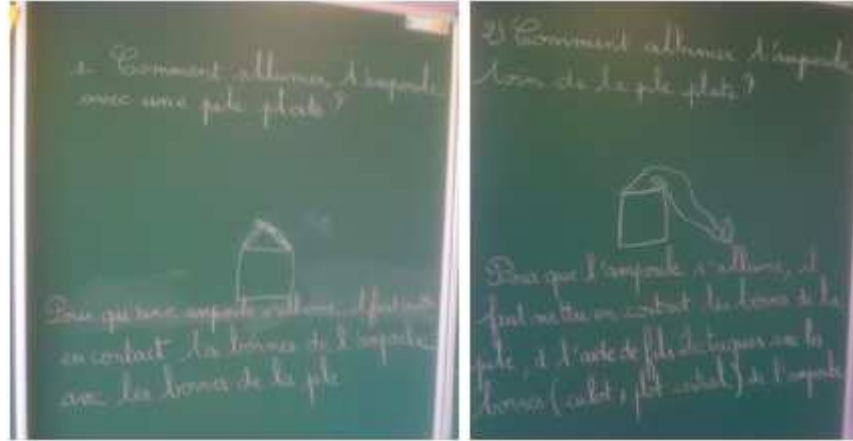 1. Comment allumer l'ampoule
avec une pile plate ?
Pour qu'une ampoule s'allume, il faut mettre
en contact les bornes de l'ampoule
avec les bornes de la pile
2) Comment allumer l'ampoule
loin de la pile plate ?
Pour que l'ampoule s'allume, il
faut mettre en contact les bornes de la
pile, à l'aide de fils électriques avec les
bornes (culot, plot central) de l'ampoule